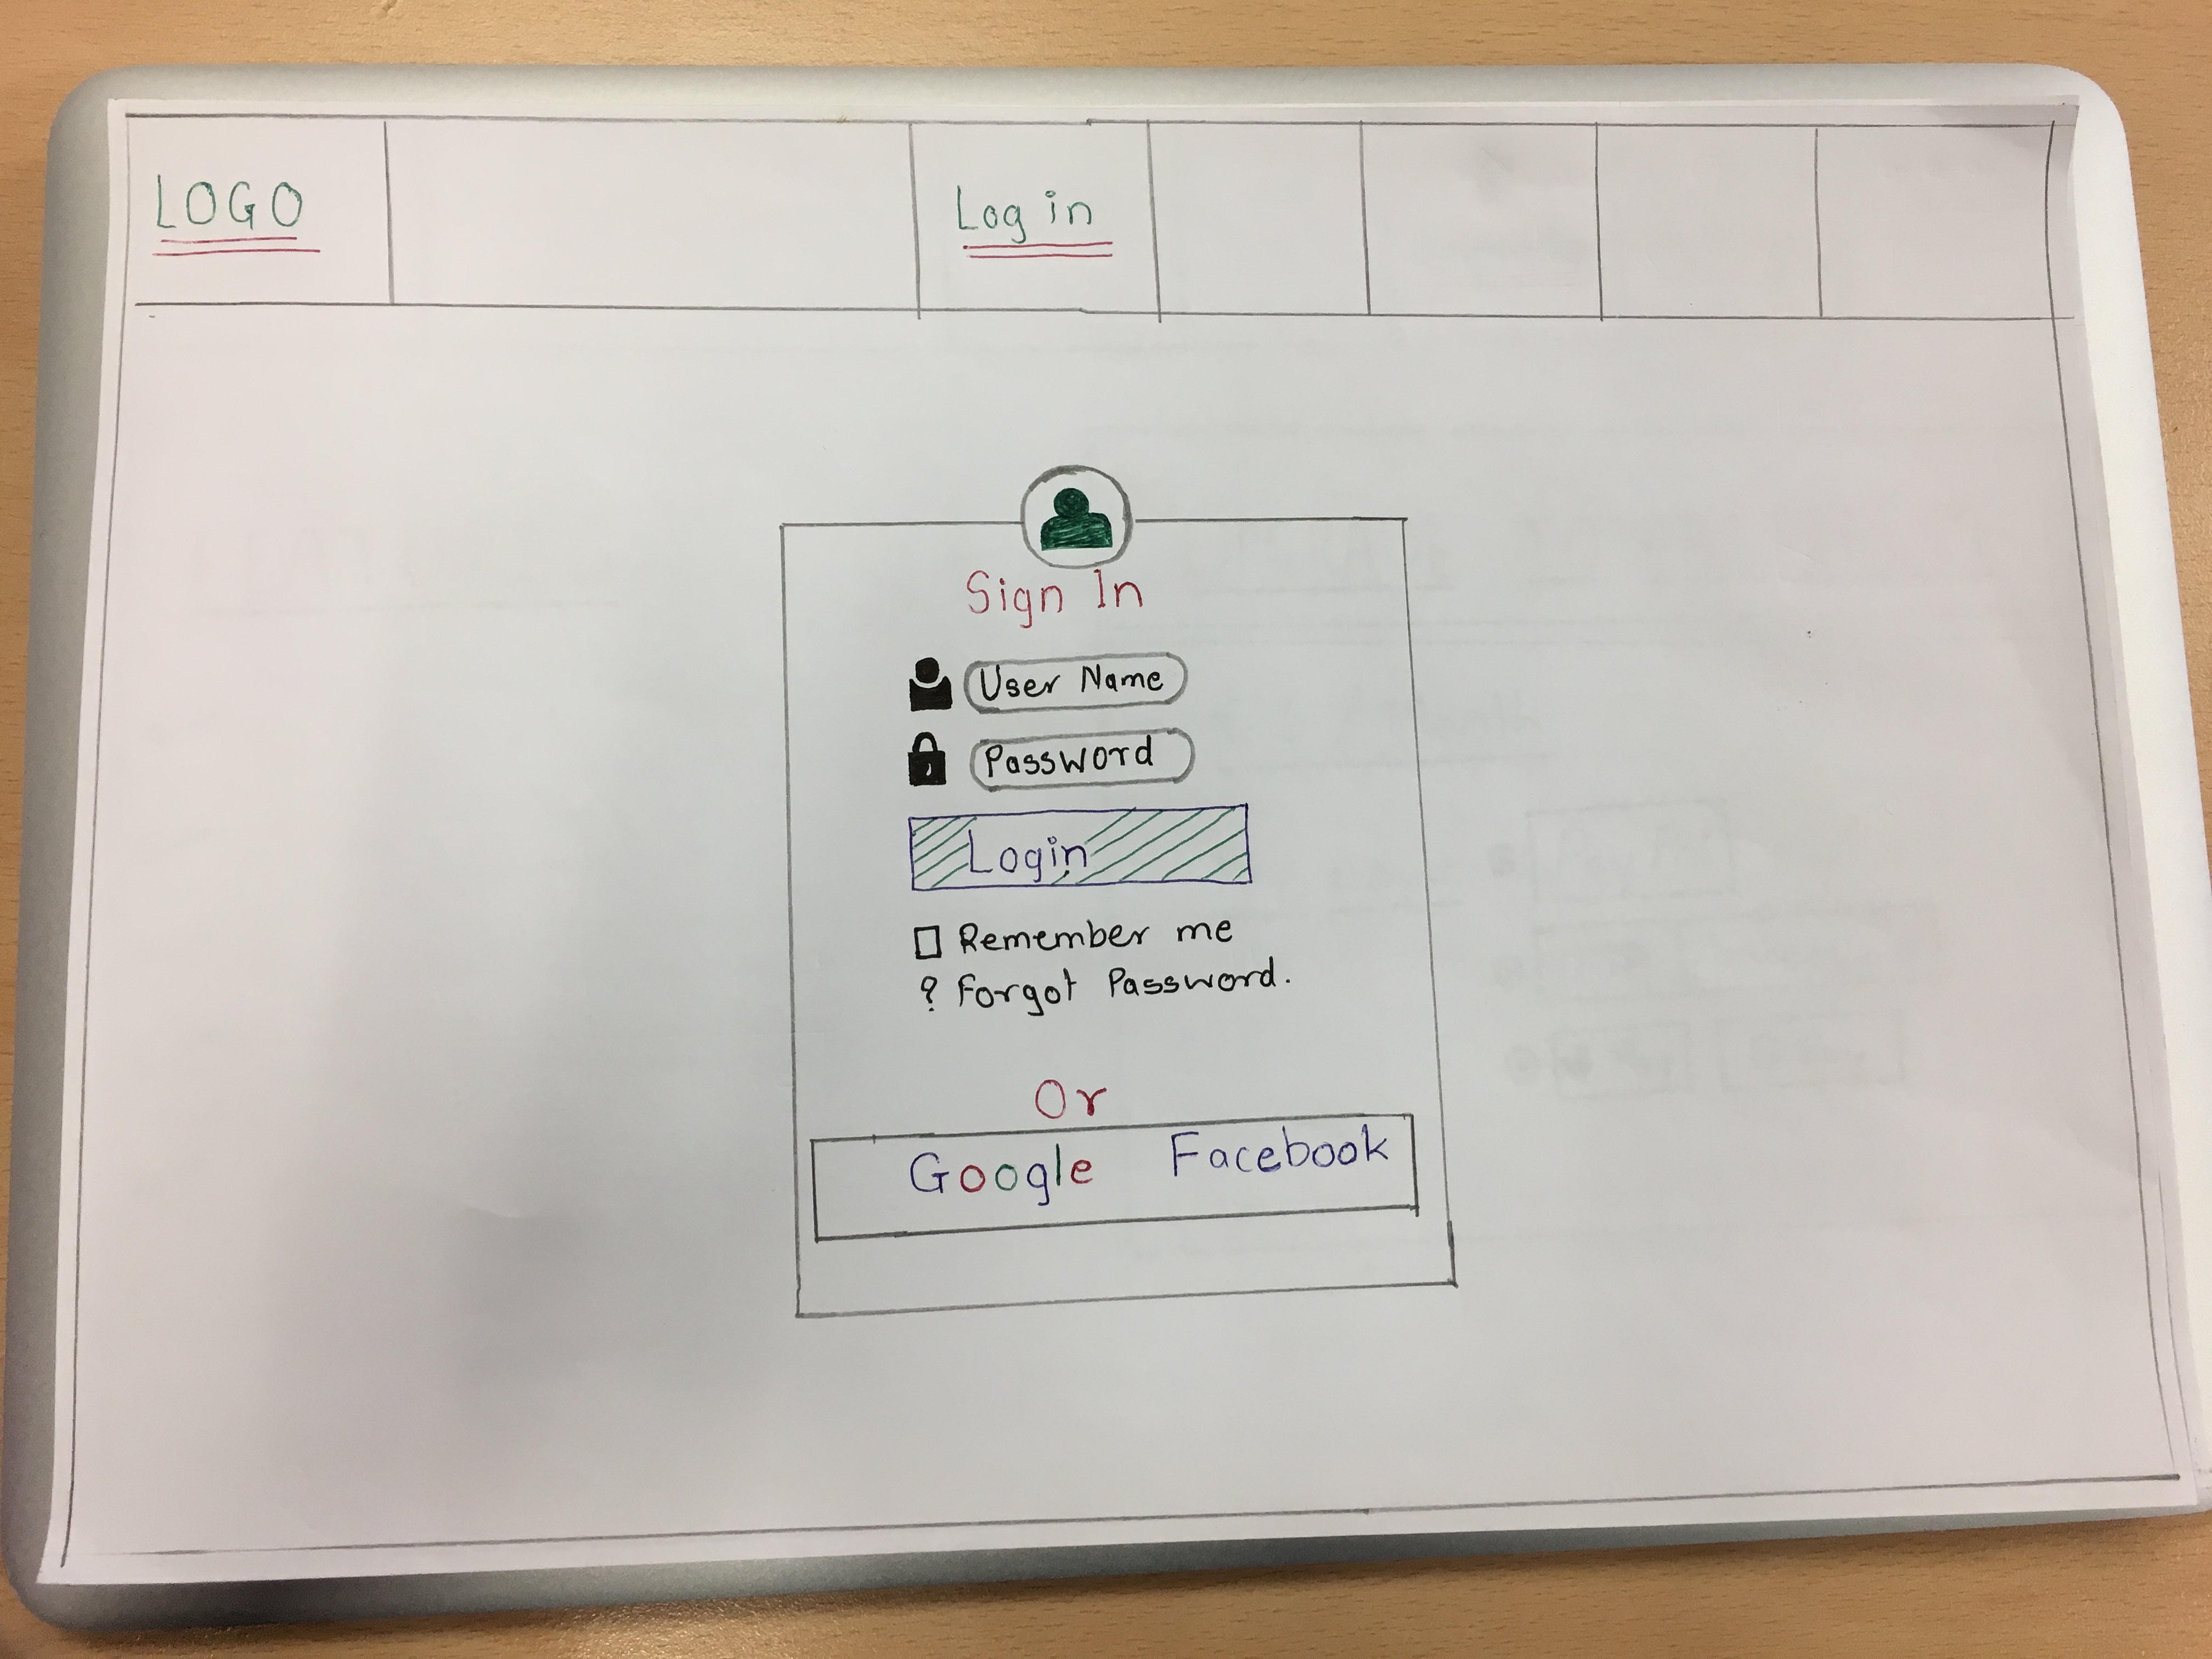 LOGO
Log in
Sign In
User Name
Password
Login
Remember me
? Forgot Password.
Or
Google Facebook